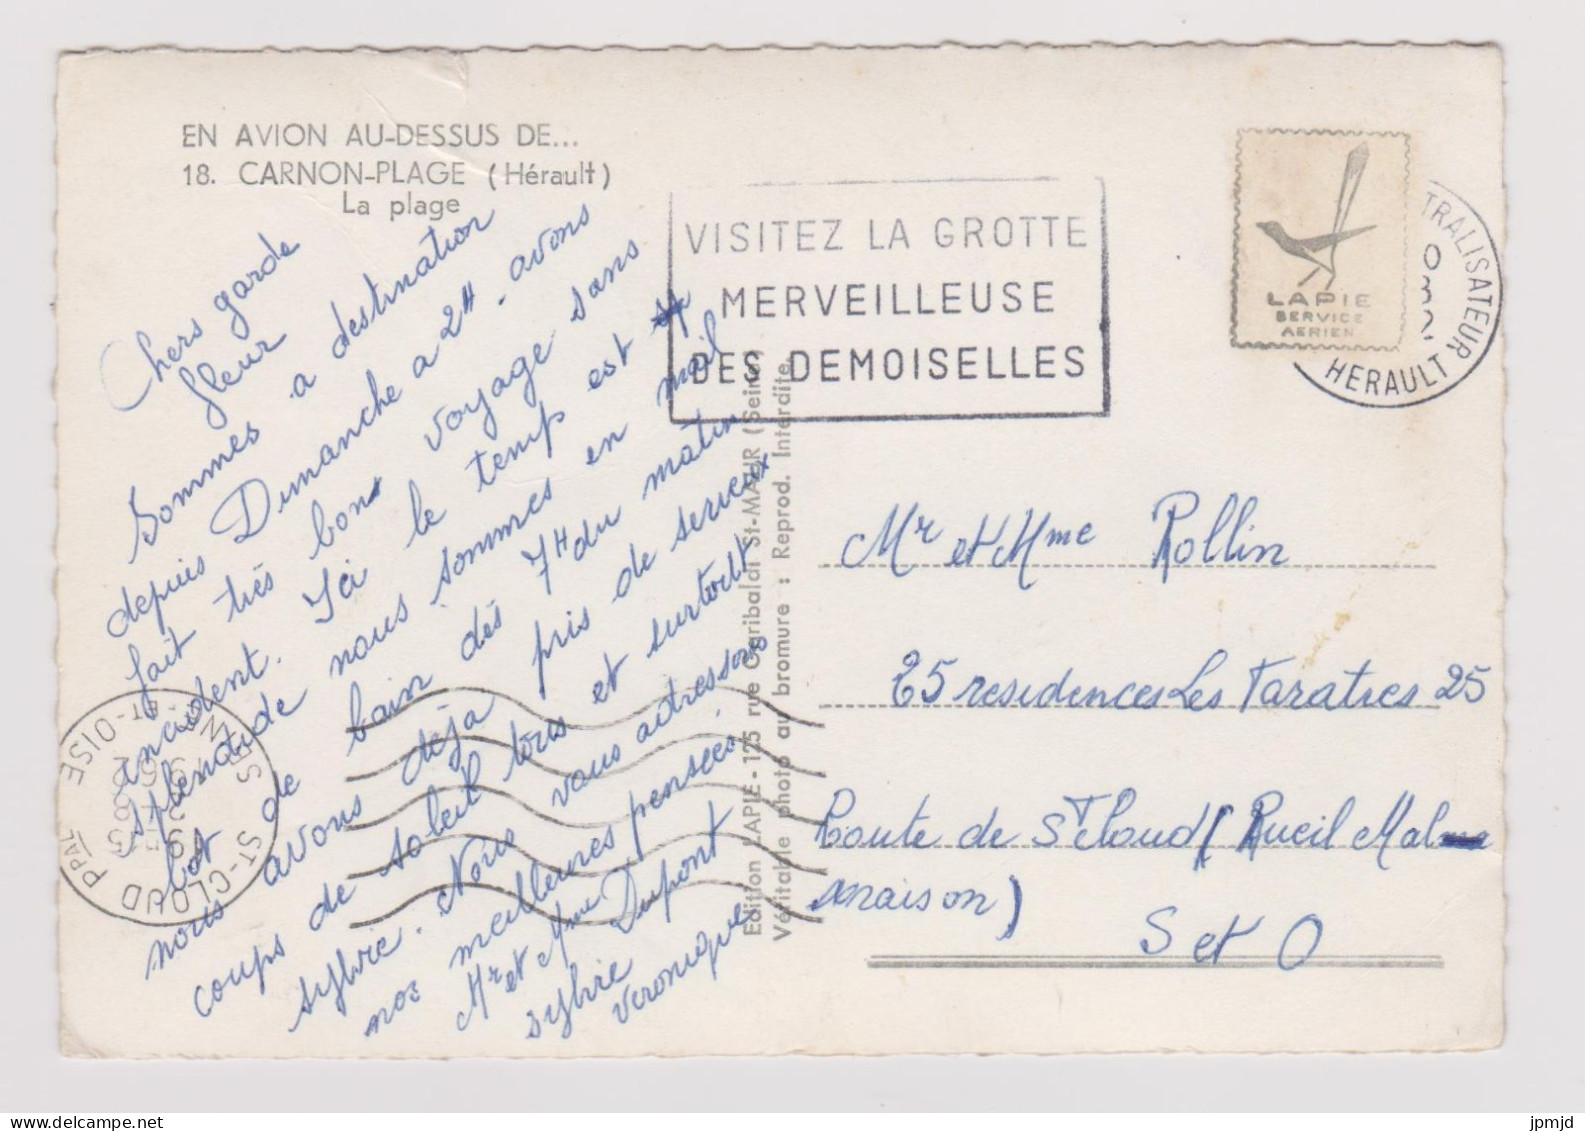 EN AVION AU-DESSUS DE...
18. CARNON-PLAGE (Hérault)
La plage
Chers garde
fleur
Sommes a destination
depuis Dimanche a 2H. avons
fait trés bon voyage sans
incident. Ici le temps est
splendide nous sommes en mail
lot de bain dés 7H du matin
nous avons déja pris de serieux
coups de soleil tous et surtout
sylvie. Nous vous adressons
nos meilleures pensées
Mr et Mme Dupont
sylvie
Veronique
VISITEZ LA GROTTE
MERVEILLEUSE
DES DEMOISELLES
LAPIE
SERVICE
AERIEN
TRALISATEUR
HERAULT
Edition LAPIE - 125 rue Garibaldi St-MAUR (Seine)
Véritable photo au bromure : Reprod. Interdite
Mr et Mme Rollin
25 residences Les Taratres 25
Route de St Cloud (Rueil Mal
maison)
S et O
ST-CLOUD PPAL
ET-OISE